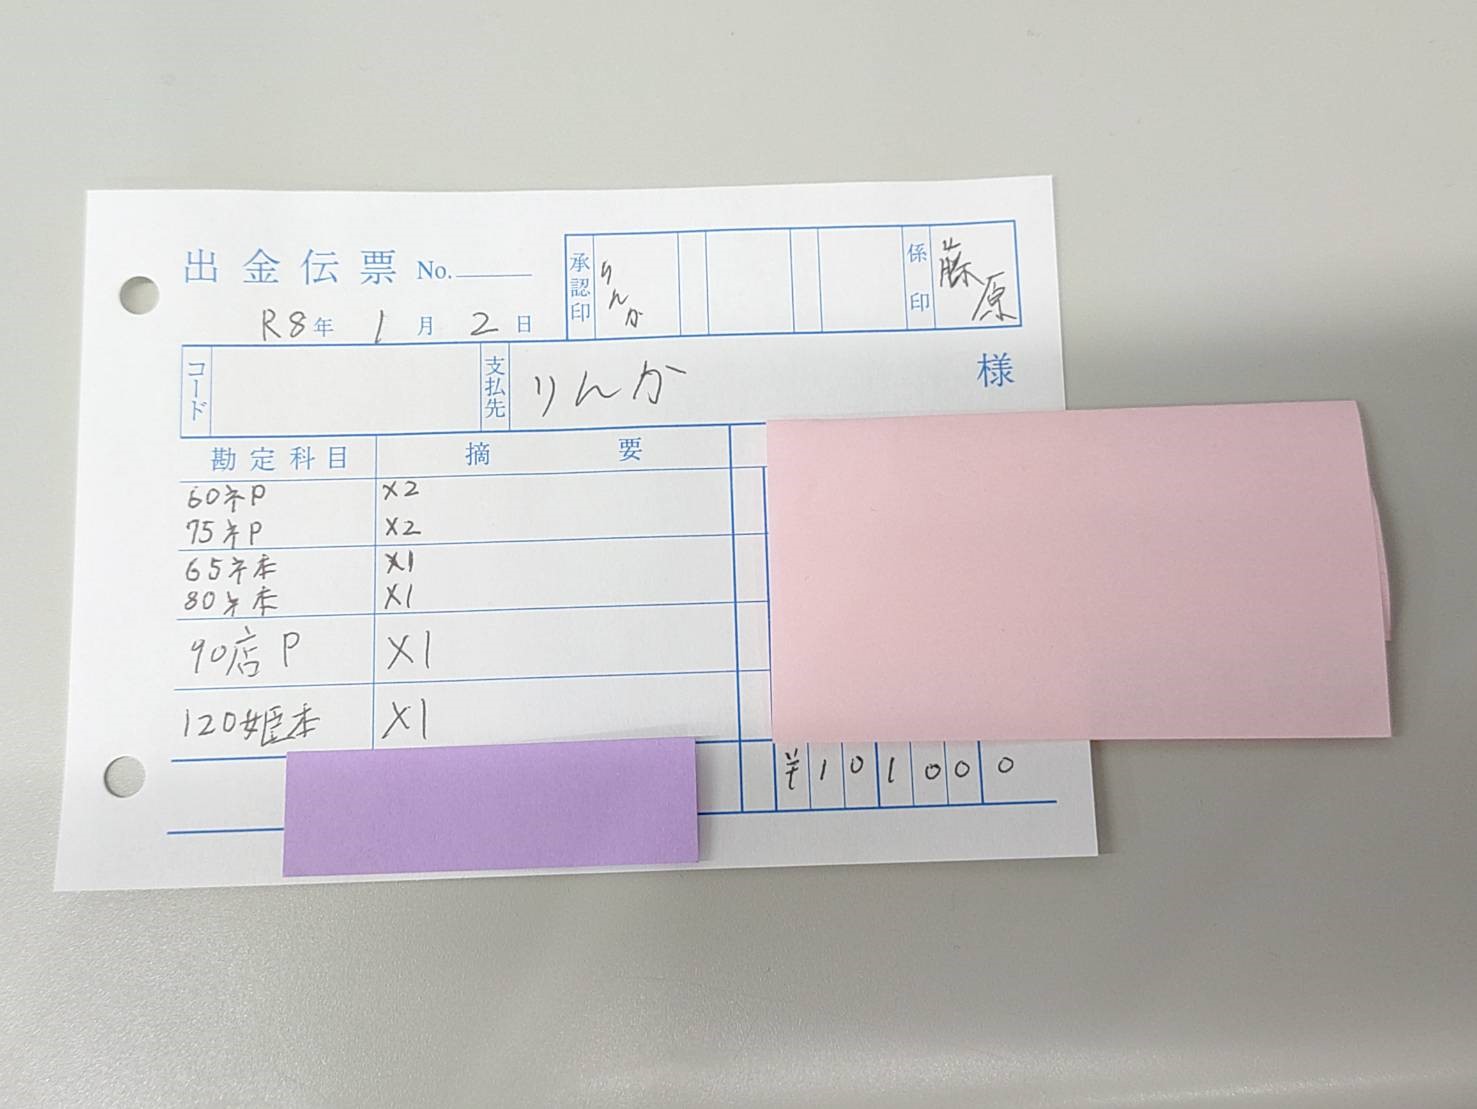 出金伝票 No.
承認印 りんか 係印 藤原
R8年 1月 2日
コード 支払先 りんか 様
勘定科目 摘要
60ネP ×2
75ネP ×2
65ネ本 ×1
80ネ本 ×1
90店P ×1
120姫本 ×1
¥101000